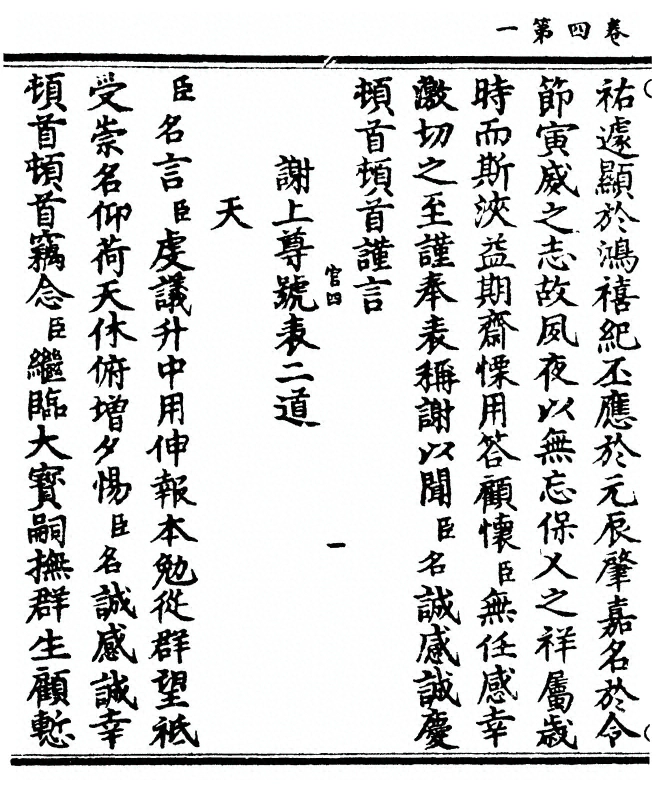 卷四第一
祐遽顯於鴻禧紀丕應於元辰肇嘉名於令
節寅威之志故夙夜以無忘保乂之祥屬歲
時而斯浹益期齋慄用答顧懷臣無任感幸
激切之至謹奉表稱謝以聞臣名誠感誠慶
頓首頓首謹言
官四
一
謝上尊號表二道
天
臣名言臣虔議升中用伸報本勉從群望祗
受崇名仰荷天休俯增夕惕臣名誠感誠幸
頓首頓首竊念臣繼臨大寶嗣撫群生顧慙